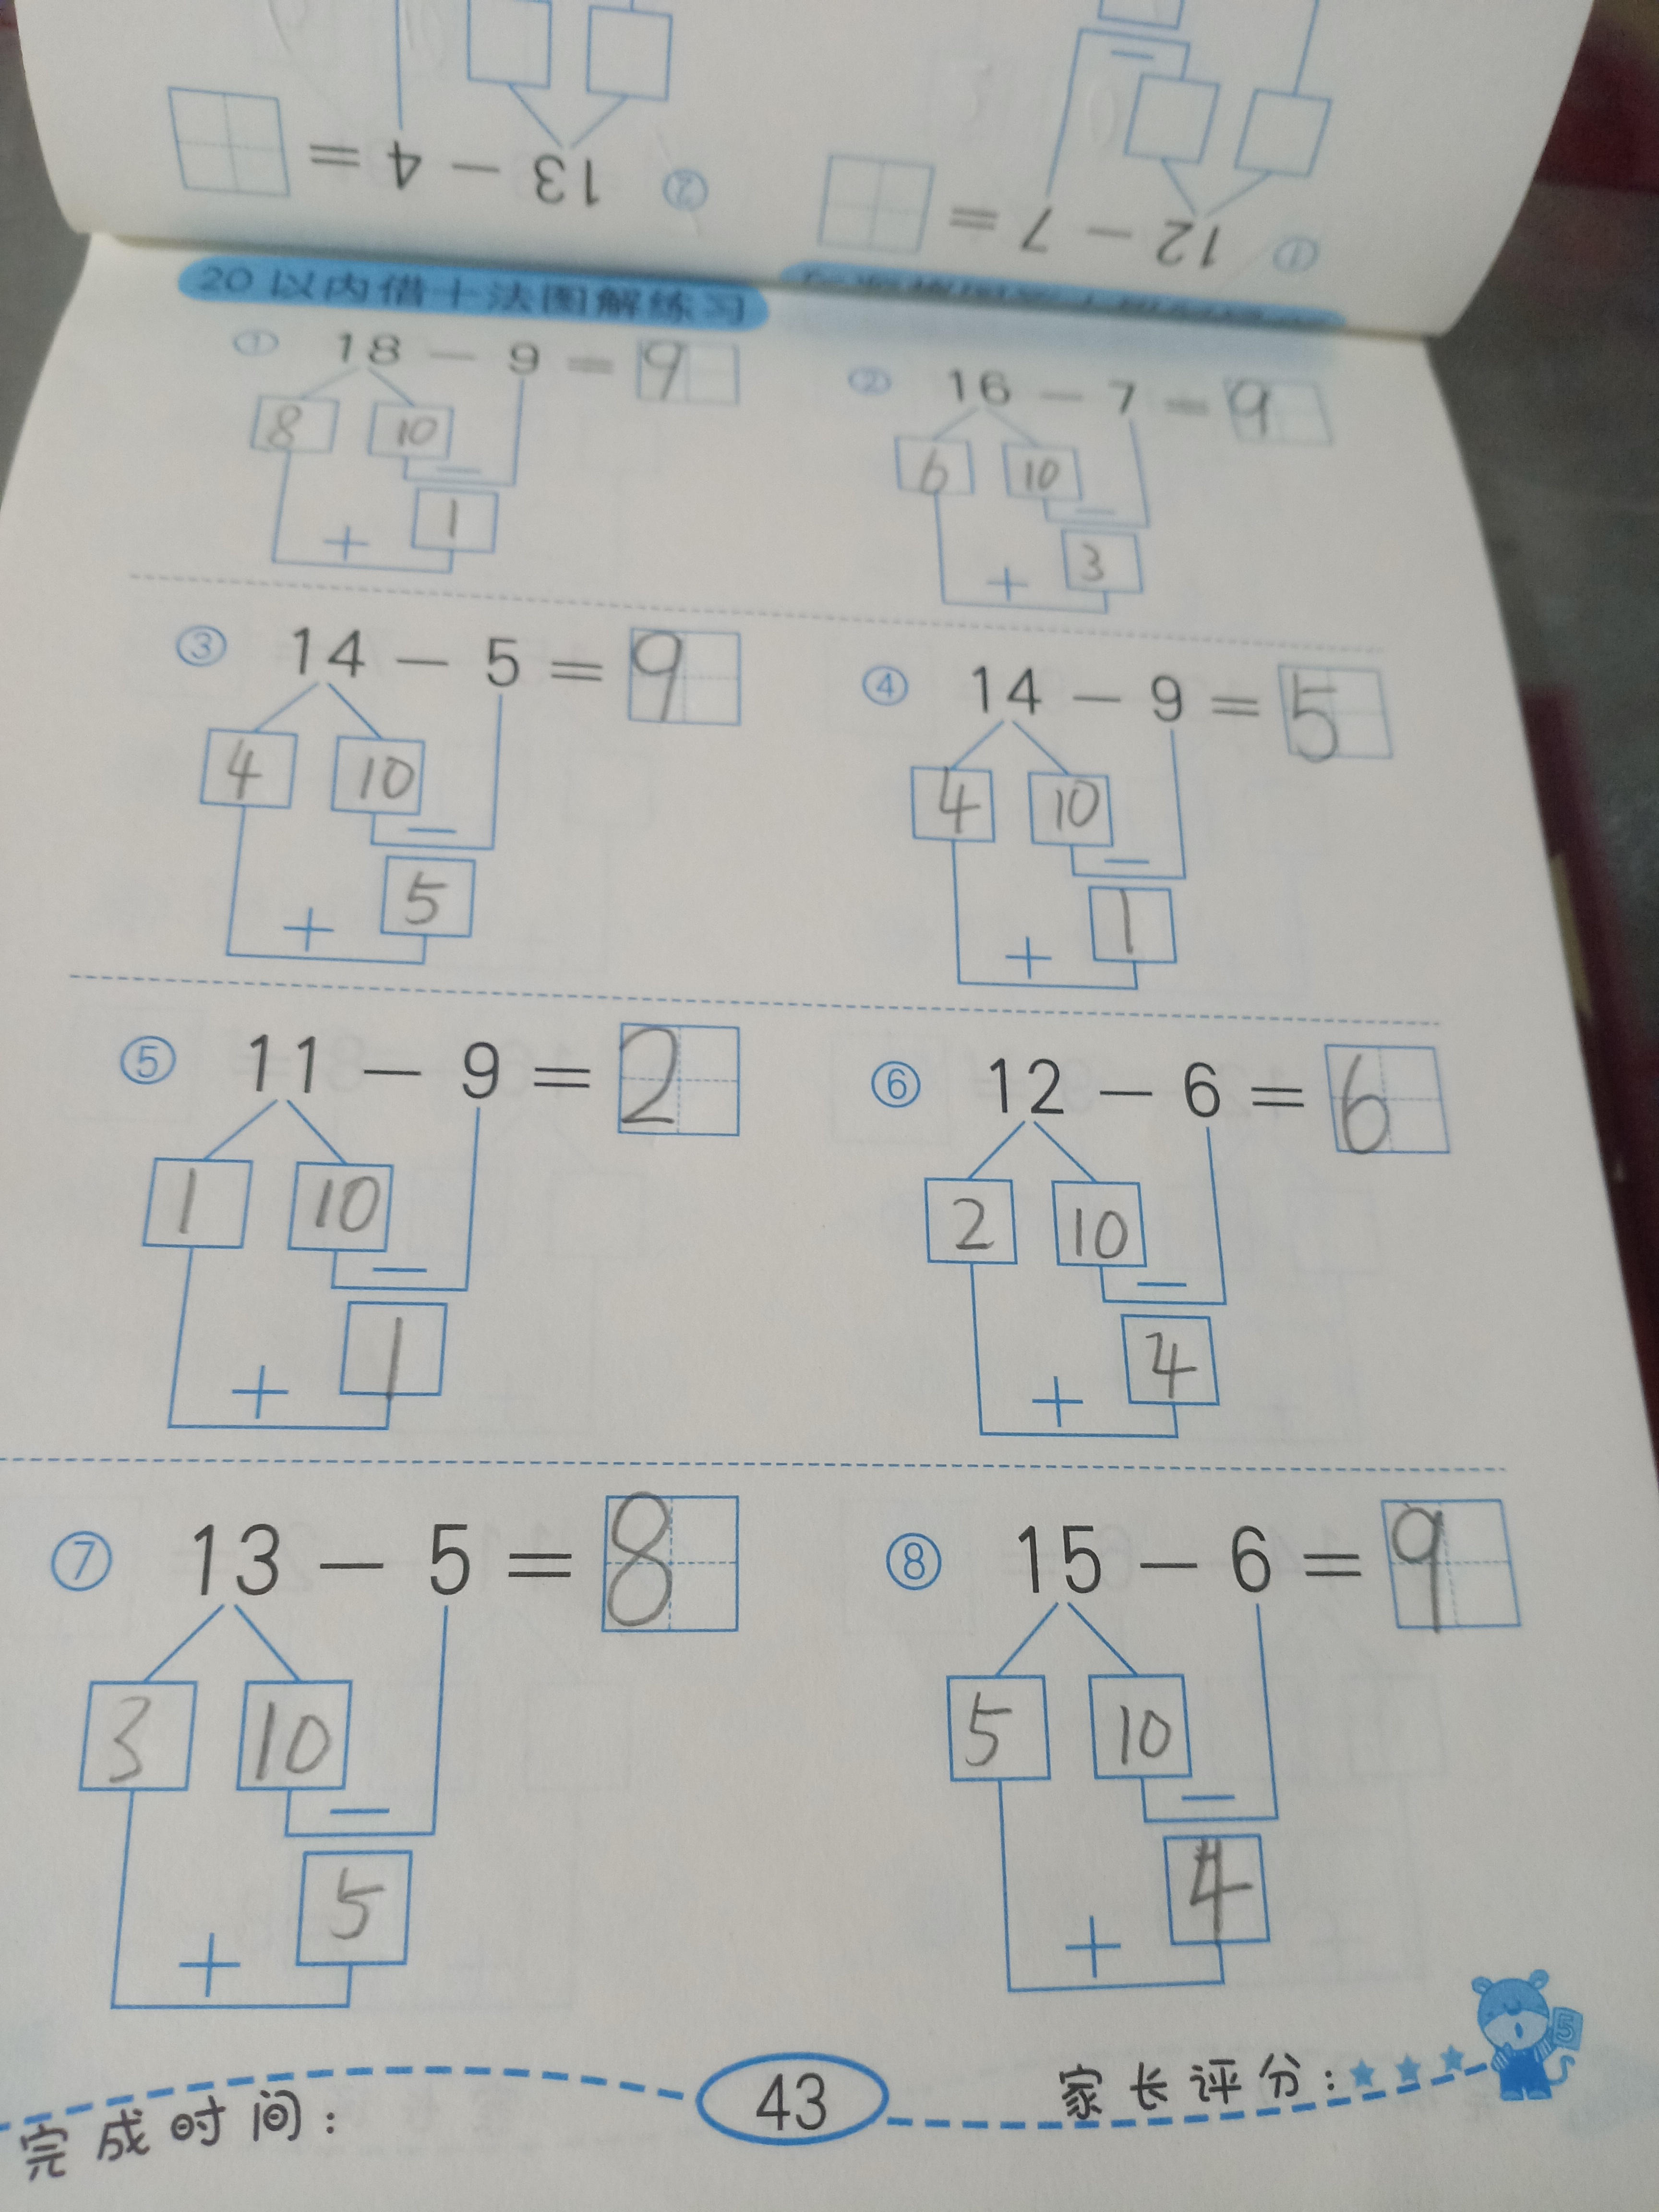 ② 13 − 4 =
① 12 − 7 =
20 以内借十法图解练习
① 18 − 9 = 9
8 10
−
1
+
② 16 − 7 = 9
6 10
−
3
+
③ 14 − 5 = 9
4 10
−
5
+
④ 14 − 9 = 5
4 10
−
1
+
⑤ 11 − 9 = 2
1 10
−
1
+
⑥ 12 − 6 = 6
2 10
−
4
+
⑦ 13 − 5 = 8
3 10
−
5
+
⑧ 15 − 6 = 9
5 10
−
4
+
5
完成时间：
43
家长评分：